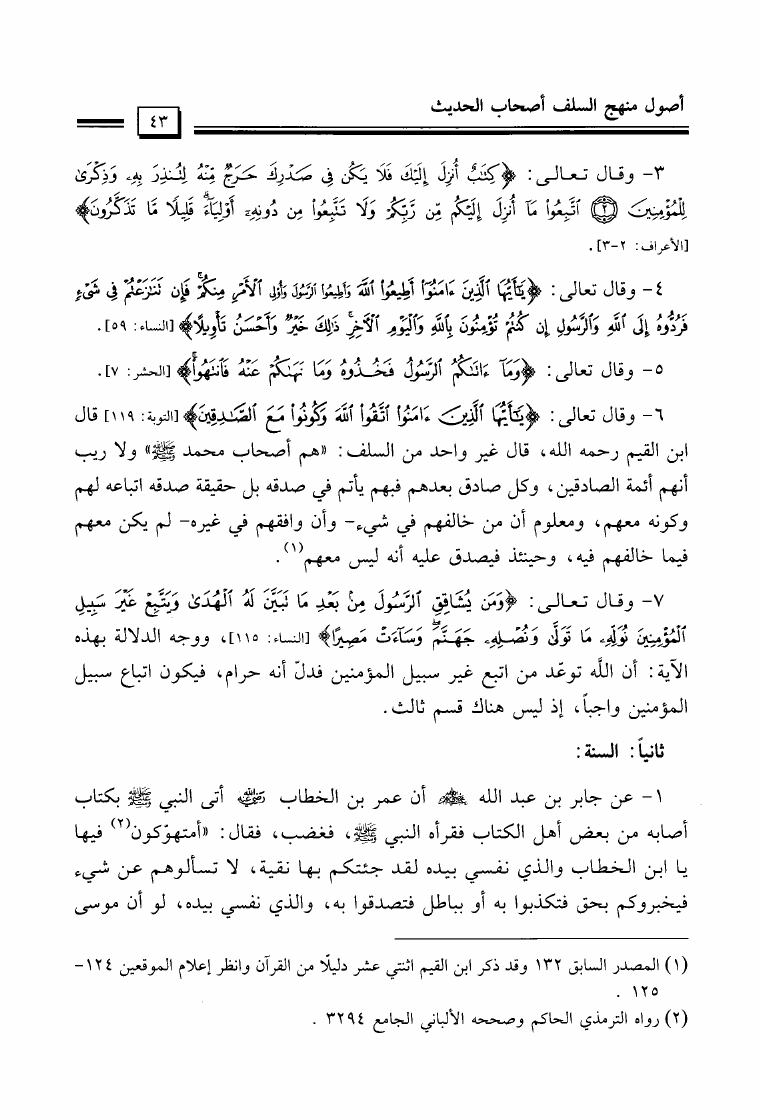 أصول منهج السلف أصحاب الحديث
٤٣
٣- وقال تعالى: ﴿كِتَٰبٌ أُنزِلَ إِلَيْكَ فَلَا يَكُن فِي صَدْرِكَ حَرَجٌ مِّنْهُ لِتُنذِرَ بِهِۦ وَذِكْرَىٰ
لِلْمُؤْمِنِينَ ۝٢ ٱتَّبِعُوا۟ مَآ أُنزِلَ إِلَيْكُم مِّن رَّبِّكُمْ وَلَا تَتَّبِعُوا۟ مِن دُونِهِۦٓ أَوْلِيَآءَ ۗ قَلِيلًا مَّا تَذَكَّرُونَ﴾
[الأعراف: ٢-٣].
٤- وقال تعالى: ﴿يَٰٓأَيُّهَا ٱلَّذِينَ ءَامَنُوٓا۟ أَطِيعُوا۟ ٱللَّهَ وَأَطِيعُوا۟ ٱلرَّسُولَ وَأُو۟لِى ٱلْأَمْرِ مِنكُمْ ۖ فَإِن تَنَٰزَعْتُمْ فِى شَىْءٍ
فَرُدُّوهُ إِلَى ٱللَّهِ وَٱلرَّسُولِ إِن كُنتُمْ تُؤْمِنُونَ بِٱللَّهِ وَٱلْيَوْمِ ٱلْءَاخِرِ ۚ ذَٰلِكَ خَيْرٌ وَأَحْسَنُ تَأْوِيلًا﴾ [النساء: ٥٩].
٥- وقال تعالى: ﴿وَمَآ ءَاتَىٰكُمُ ٱلرَّسُولُ فَخُذُوهُ وَمَا نَهَىٰكُمْ عَنْهُ فَٱنتَهُوا۟ ۚ﴾ [الحشر: ٧].
٦- وقال تعالى: ﴿يَٰٓأَيُّهَا ٱلَّذِينَ ءَامَنُوا۟ ٱتَّقُوا۟ ٱللَّهَ وَكُونُوا۟ مَعَ ٱلصَّٰدِقِينَ﴾ [التوبة: ١١٩] قال
ابن القيم رحمه الله، قال غير واحد من السلف: «هم أصحاب محمد ﷺ» ولا ريب
أنهم أئمة الصادقين، وكل صادق بعدهم فبهم يأتم في صدقه بل حقيقة صدقه اتباعه لهم
وكونه معهم، ومعلوم أن من خالفهم في شيء- وأن وافقهم في غيره- لم يكن معهم
فيما خالفهم فيه، وحينئذ فيصدق عليه أنه ليس معهم(١).
٧- وقال تعالى: ﴿وَمَن يُشَاقِقِ ٱلرَّسُولَ مِنۢ بَعْدِ مَا تَبَيَّنَ لَهُ ٱلْهُدَىٰ وَيَتَّبِعْ غَيْرَ سَبِيلِ
ٱلْمُؤْمِنِينَ نُوَلِّهِۦ مَا تَوَلَّىٰ وَنُصْلِهِۦ جَهَنَّمَ ۖ وَسَآءَتْ مَصِيرًا﴾ [النساء: ١١٥]، ووجه الدلالة بهذه
الآية: أن اللَّه توعّد من اتبع غير سبيل المؤمنين فدلّ أنه حرام، فيكون اتباع سبيل
المؤمنين واجباً، إذ ليس هناك قسم ثالث.
ثانياً: السنة:
١- عن جابر بن عبد الله رضي الله عنهما أن عمر بن الخطاب رضي الله عنه أتى النبي ﷺ بكتاب
أصابه من بعض أهل الكتاب فقرأه النبي ﷺ، فغضب، فقال: «أمتهوّكون(٢) فيها
يا ابن الخطاب والذي نفسي بيده لقد جئتكم بها نقية، لا تسألوهم عن شيء
فيخبروكم بحق فتكذبوا به أو بباطل فتصدقوا به، والذي نفسي بيده، لو أن موسى
(١) المصدر السابق ١٣٢ وقد ذكر ابن القيم اثنتي عشر دليلًا من القرآن وانظر إعلام الموقعين ١٢٤-
١٢٥ .
(٢) رواه الترمذي الحاكم وصححه الألباني الجامع ٣٢٩٤ .